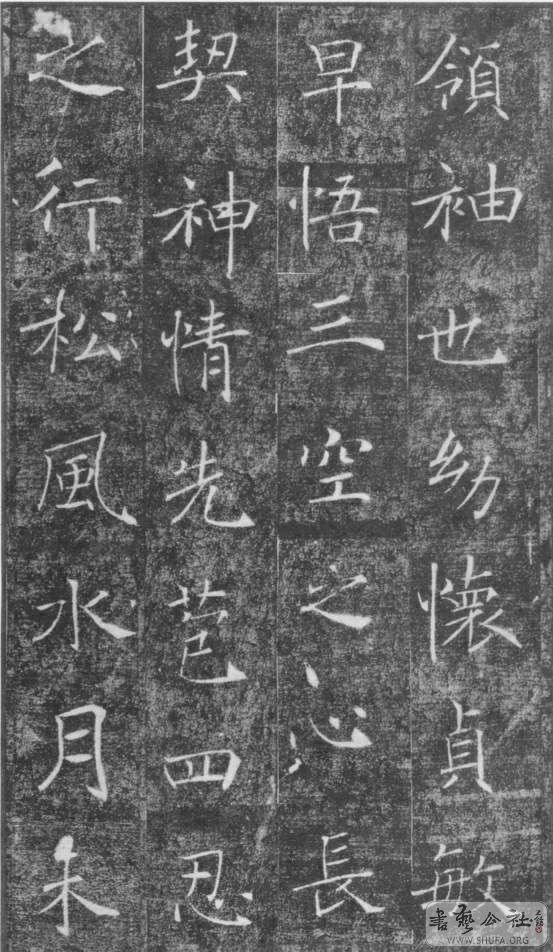 領袖也幼懷貞敏
早悟三空之心長
契神情先苞四忍
之行松風水月未
書艺公社
WWW.SHUFA.ORG